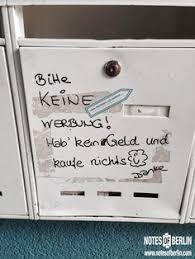 Bitte
KEINE
WERBUNG!
Hab' kein Geld und
kaufe nichts
Danke
NOTES OF BERLIN
www.notesofberlin.com